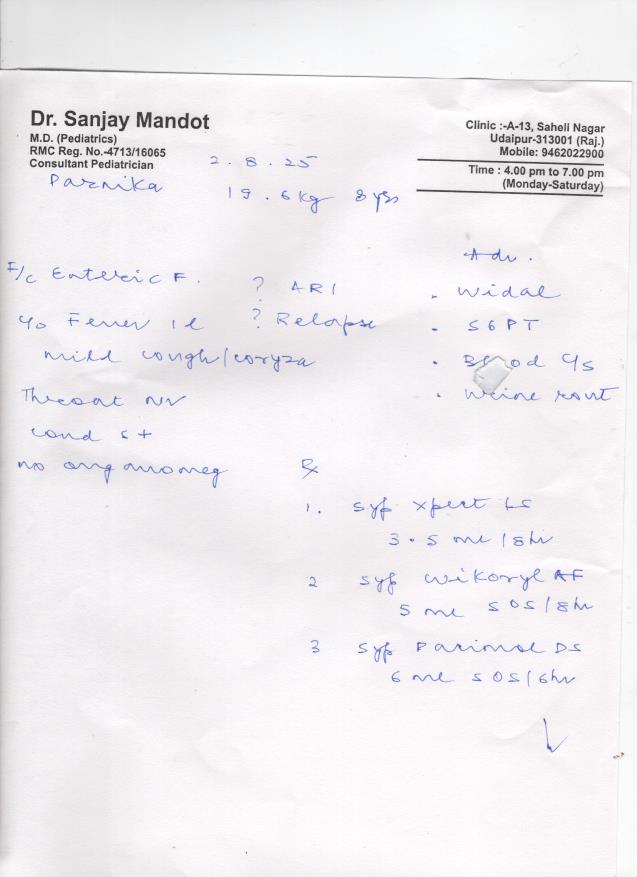 Dr. Sanjay Mandot
M.D. (Pediatrics)
RMC Reg. No.-4713/16065
Consultant Pediatrician
Clinic :-A-13, Saheli Nagar
Udaipur-313001 (Raj.)
Mobile: 9462022900
Time : 4.00 pm to 7.00 pm
(Monday-Saturday)
2.8.25
Parnika
19.6kg 8 yrs
F/c Enteric F.
c/o Fever 1d
mild cough/coryza
Throat NV
cond s+
no organomeg
? ARI
? Relapse
Adv.
. Widal
. SGPT
. Blood C/s
. Urine rout
Rx
1. Syp Xpect LS
3.5 ml/8hr
2 Syp Wikoryl AF
5 ml SOS/8hr
3 Syp Parimol DS
6 ml SOS/6hr